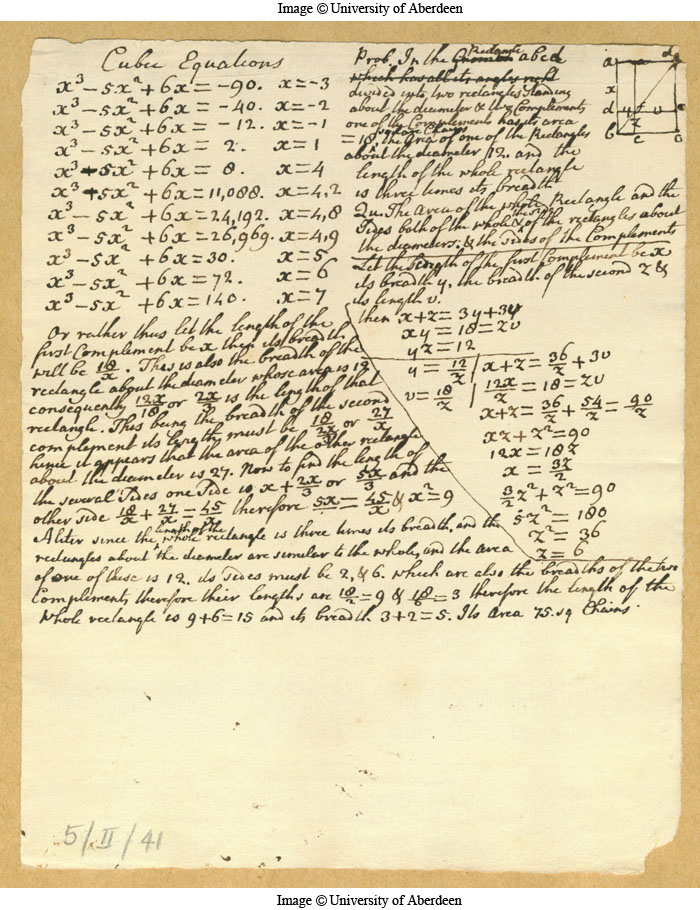 Image © University of Aberdeen
Cubic Equations
x³ – 5x² + 6x = –90. x = –3
x³ – 5x² + 6x = –40. x = –2
x³ – 5x² + 6x = –12. x = –1
x³ – 5x² + 6x = 2. x = 1
x³ – 5x² + 6x = 8. x = 4
x³ + 5x² + 6x = 11,088. x = 4,2
x³ – 5x² + 6x = 24,192. x = 4,8
x³ – 5x² + 6x = 26,969. x = 4,9
x³ – 5x² + 6x = 30. x = 5
x³ – 5x² + 6x = 72. x = 6
x³ – 5x² + 6x = 140. x = 7
Or rather thus let the length of the
first Complement be x then its breadth
will be 18/x. This is also the breadth of the
rectangle about the diameter whose area is 12
consequently 12x/18 or 2x/3 is the length of that
rectangle. This being the breadth of the second
complement its length must be 18/(2x/3) or 27/x
hence it appears that the area of the other rectangle
about the diameter is 27. Now to find the length of
the several Sides one Side is x + 2x/3 or 5x/3 and the
other side 18/x + 27/x = 45/x therefore 5x = 45/x & x² = 9
Prob. In the Rectangle abcd
which has all its angles right
divided into two rectangles standing
about the diameter & two Complements
one of the Complements has its area
= 18 square Chains the Area of one of the Rectangles
about the diameter 12. and the
length of the whole rectangle
is three times its breadth
Qu. The Area of the whole Rectangle and the
Sides both of the whole & of the rectangles about
the diameters. & the sides of the Complements
Let the length of the first Complement be x
its breadth y, the breadth of the second z &
its length v.
then x + z = 3y + 3v
xy = 18 = zv
yz = 12
y = 12/z x + z = 36/z + 3v
v = 18/z 12x/z = 18 = zv
x + z = 36/z + 54/z = 90/z
xz + z² = 90
12x = 18z
x = 3z/2
3/2 z² + z² = 90
5z² = 180
z² = 36
z = 6
Aliter since the length of the whole rectangle is three times its breadth, and the
rectangles about the diameter are similar to the whole, and the area
of one of these is 12. its sides must be 2, & 6. which are also the breadths of the two
Complements, therefore their lengths are 18/2 = 9 & 18/6 = 3 therefore the length of the
whole rectangle is 9 + 6 = 15 and its breadth 3 + 2 = 5. Its Area 75. sq Chains.
5/II/41
Image © University of Aberdeen